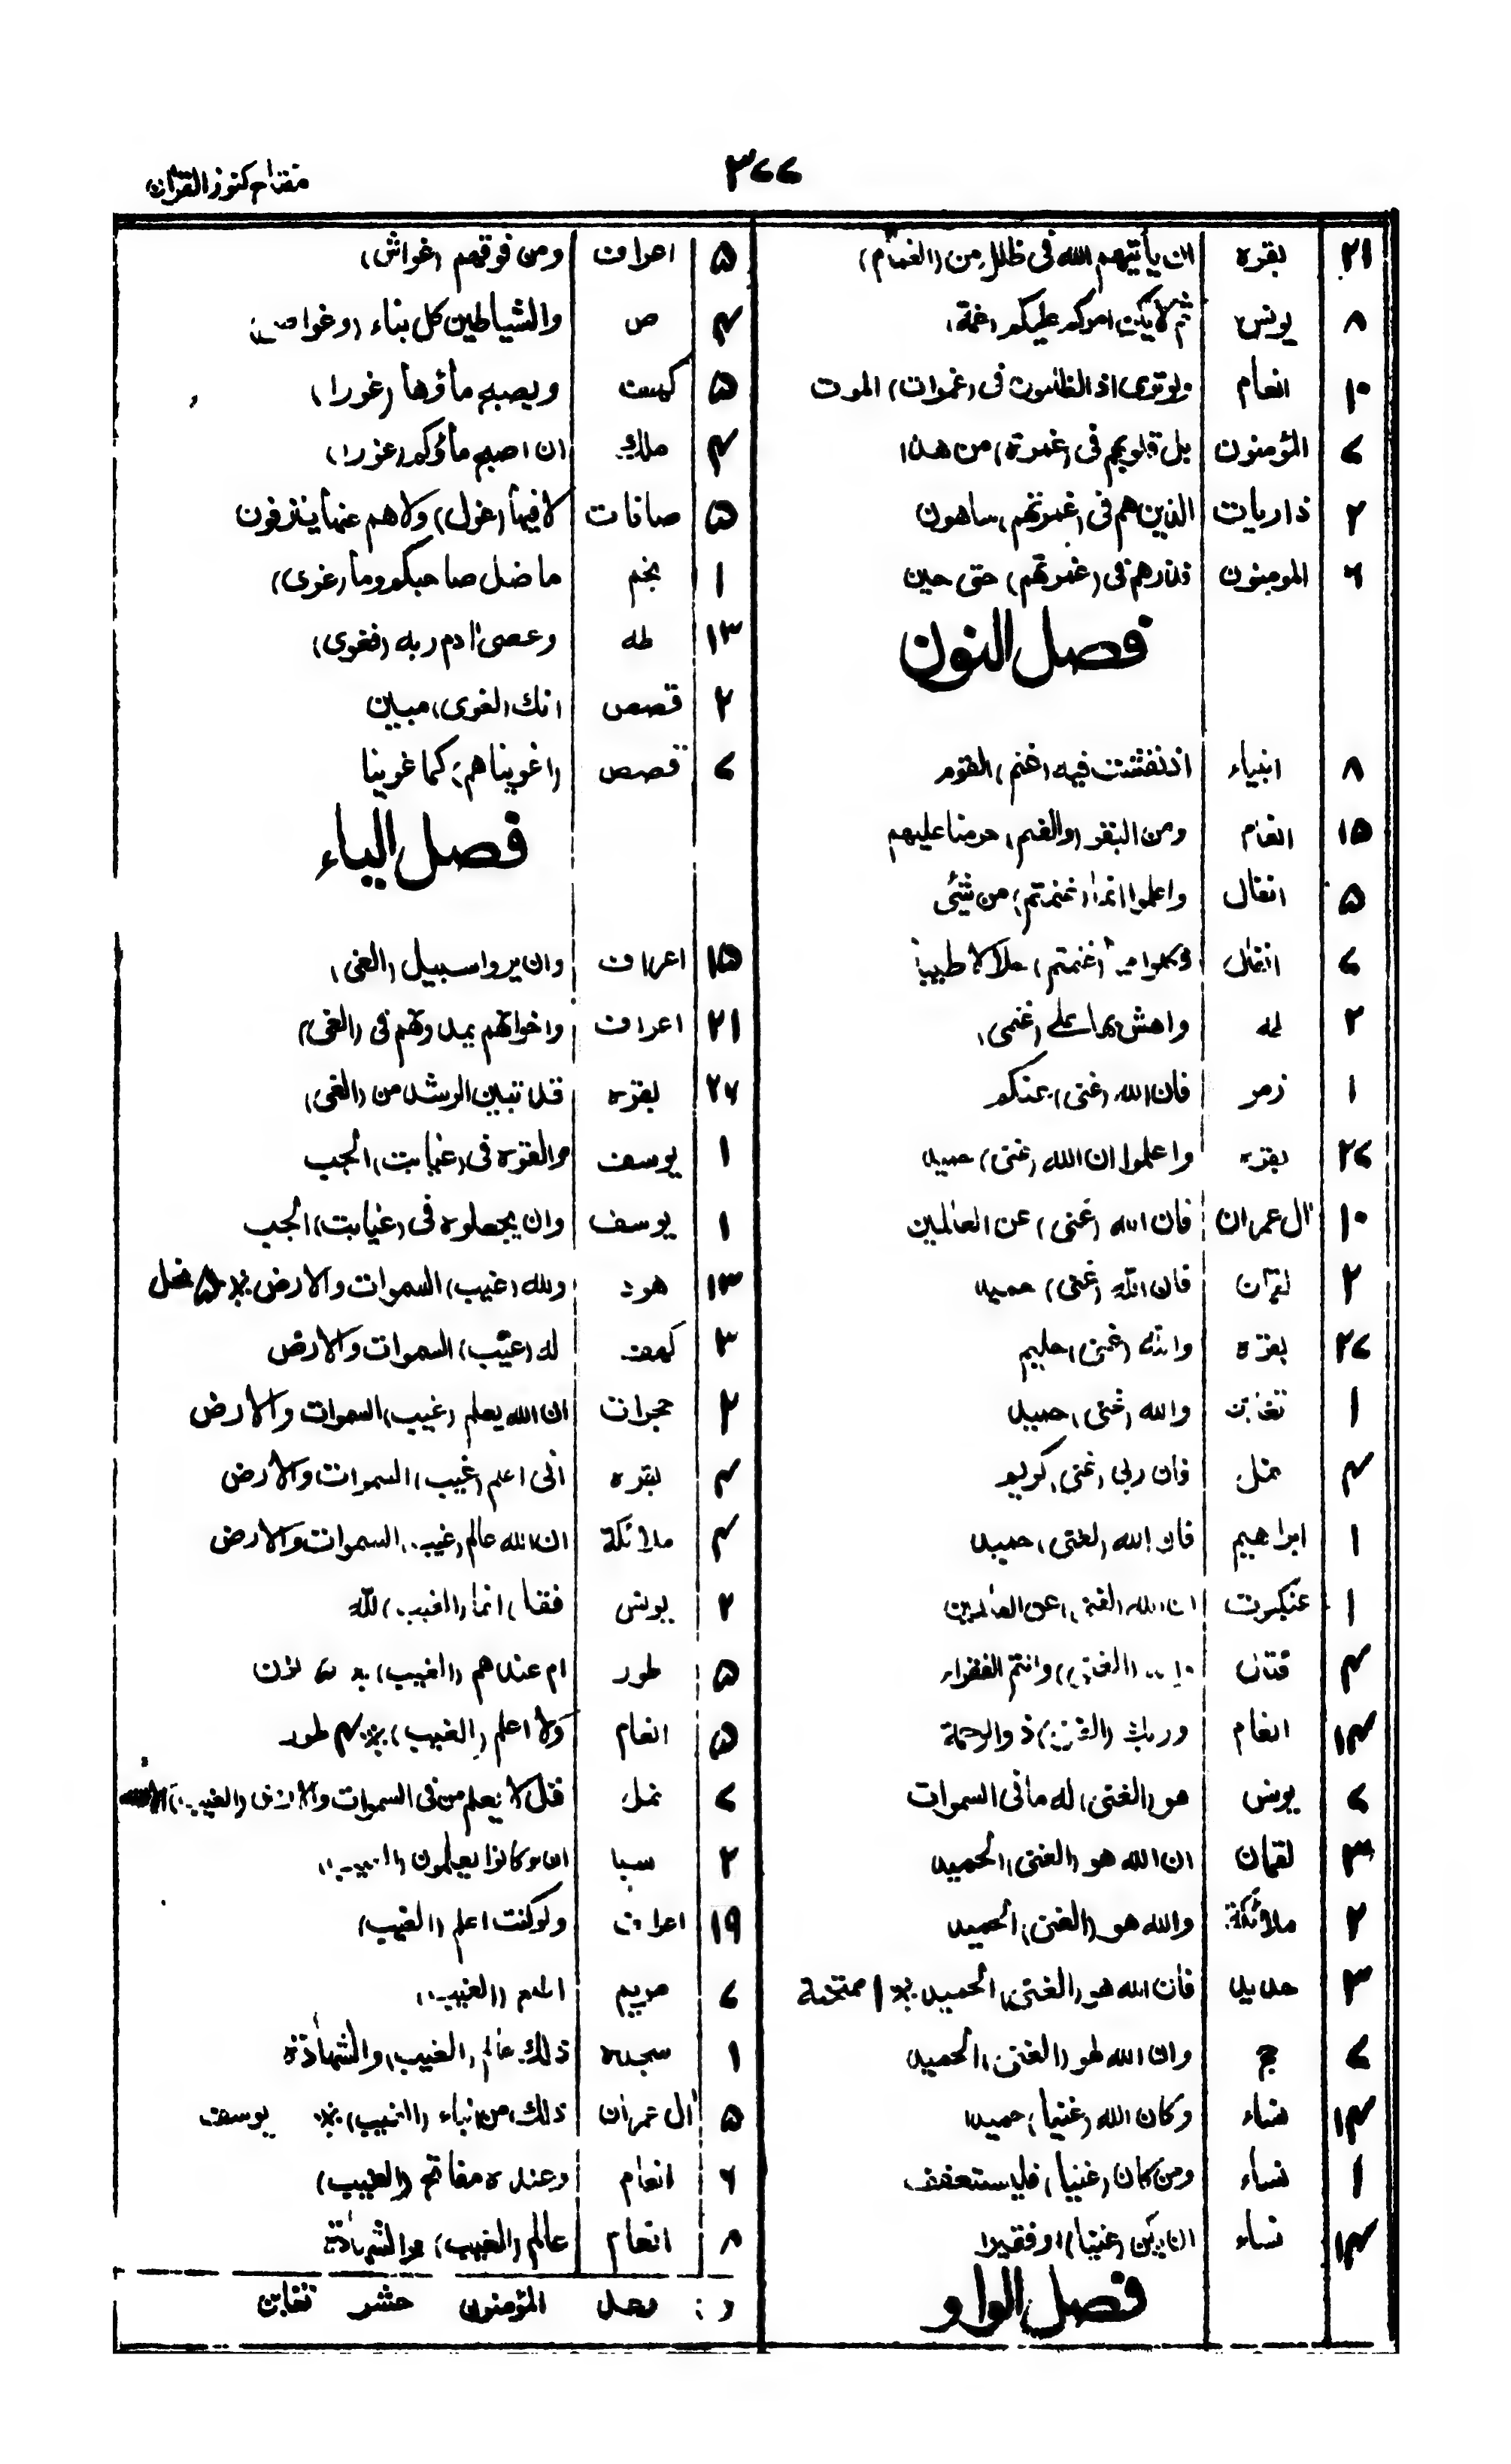 ۳۷۷
مفتاح کنوز القرآن
۲۱ بقره ان یأتیهم الله فی ظلل من (الغمام)
۸ یونس ثم لا یکن امرکم علیکم (غمة)
۱۰ انعام ولو تری اذ الظالمون فی (غمرات) الموت
۷ المؤمنون بل قلوبهم فی (غمرة) من هذا
۲ ذاریات الذین هم فی (غمرتهم) ساهون
۶ المومنون فذرهم فی (غمرتهم) حتی حین
فصل النون
۸ انبیاء اذ نفشت فیه (غنم) القوم
۱۵ انعام ومن البقر (والغنم) حرمنا علیهم
۵ انفال واعلموا انما (غنمتم) من شئی
۷ انفال فکلوا مما (غنمتم) حلالا طیبا
۲ طه واهش بها علی (غنمی)
۱ زمر فان الله (غنی) عنکم
۲۷ بقره واعلموا ان الله (غنی) حمید
۱۰ ال عمران فان الله (غنی) عن العالمین
۲ لقمان فان الله (غنی) حمید
۲۷ بقره والله (غنی) حلیم
۱ تغابن والله (غنی) حمید
۴ نمل فان ربی (غنی) کریم
۱ ابراهیم فان الله (لغنی) حمید
۱ عنکبوت ان الله (لغنی) عن العالمین
۴ قتال (الغنی) وانتم الفقراء
۱۴ انعام وربك (الغنی) ذو الرحمة
۷ یونس هو (الغنی) له ما فی السموات
۳ لقمان ان الله هو (الغنی) الحمید
۲ ملائکة والله هو (الغنی) الحمید
۳ حدید فان الله هو (الغنی) الحمید ※ ۱ ممتحنة
۷ حج وان الله لهو (الغنی) الحمید
۱۴ نساء وکان الله (غنیا) حمیدا
۱ نساء ومن کان (غنیا) فلیستعفف
۱۴ نساء ان یکن (غنیا) او فقیرا
فصل الواو
۵ اعراف ومن فوقهم (غواش)
۴ ص والشیاطین کل بناء (وغواص)
۵ کهف ویصبح ماؤها (غورا)
۴ ملك ان اصبح ماؤکم (غورا)
۵ صافات لا فیها (غول) ولا هم عنها ینزفون
۱ نجم ما ضل صاحبکم وما (غوی)
۱۳ طه وعصی ادم ربه (فغوی)
۲ قصص انك (لغوی) مبین
۷ قصص (اغویناهم) کما غوینا
فصل الیاء
۱۵ اعراف وان یروا سبیل (الغی)
۲۱ اعراف واخوانهم یمدونهم فی (الغی)
۲۶ بقره قد تبین الرشد من (الغی)
۱ یوسف والقوه فی (غیابت) الجب
۱ یوسف وان یجعلوه فی (غیابت) الجب
۱۳ هود ولله (غیب) السموات والارض ※ ۵ نحل
۳ کهف له (غیب) السموات والارض
۲ حجرات ان الله یعلم (غیب) السموات والارض
۴ بقره انی اعلم (غیب) السموات والارض
۴ ملائکة ان الله عالم (غیب) السموات والارض
۲ یونس فقل انما (الغیب) لله
۵ طور ام عندهم (الغیب) ※
۵ انعام ولا اعلم (الغیب) ※ ۴ طور
۷ نمل قل لا یعلم من فی السموات والارض (الغیب)
۲ سبا ان لو کانوا یعلمون (الغیب)
۱۹ اعراف ولو کنت اعلم (الغیب)
۷ مریم اطلع (الغیب)
۱ سجده ذلك عالم (الغیب) والشهادة
۵ ال عمران ذلك من انباء (الغیب) ※ یوسف
۶ انعام وعنده مفاتح (الغیب)
۸ انعام عالم (الغیب) والشهادة
رعد المؤمنون حشر تغابن